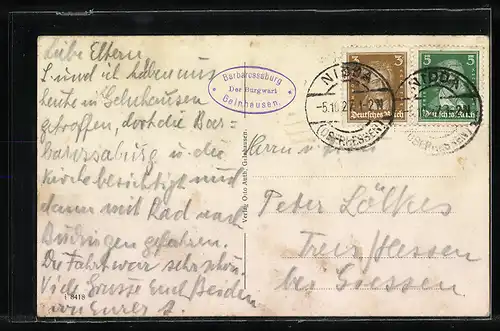 Liebe Eltern
L. und ich haben uns
heute in Gelnhausen
getroffen, dort die Bar-
barossaburg u. die
Kirche besichtigt und
dann mit Rad nach
Büdingen gefahren.
Die Fahrt war sehr schön.
Viele Grüsse Euch Beiden
von Eurer
L 8418
Barbarossaburg
Der Burgwart
Gelnhausen.
Verlag Otto Auth, Gelnhausen.
3 3
Deutsches Reich
5 5
Deutsches Reich
NIDDA
-5.10.27.1-2.N
(OBERHESSEN)
NIDDA
(OBERHESSEN)
Herrn u. Frau
Peter Lölkes
Treis/Hessen
bei Giessen